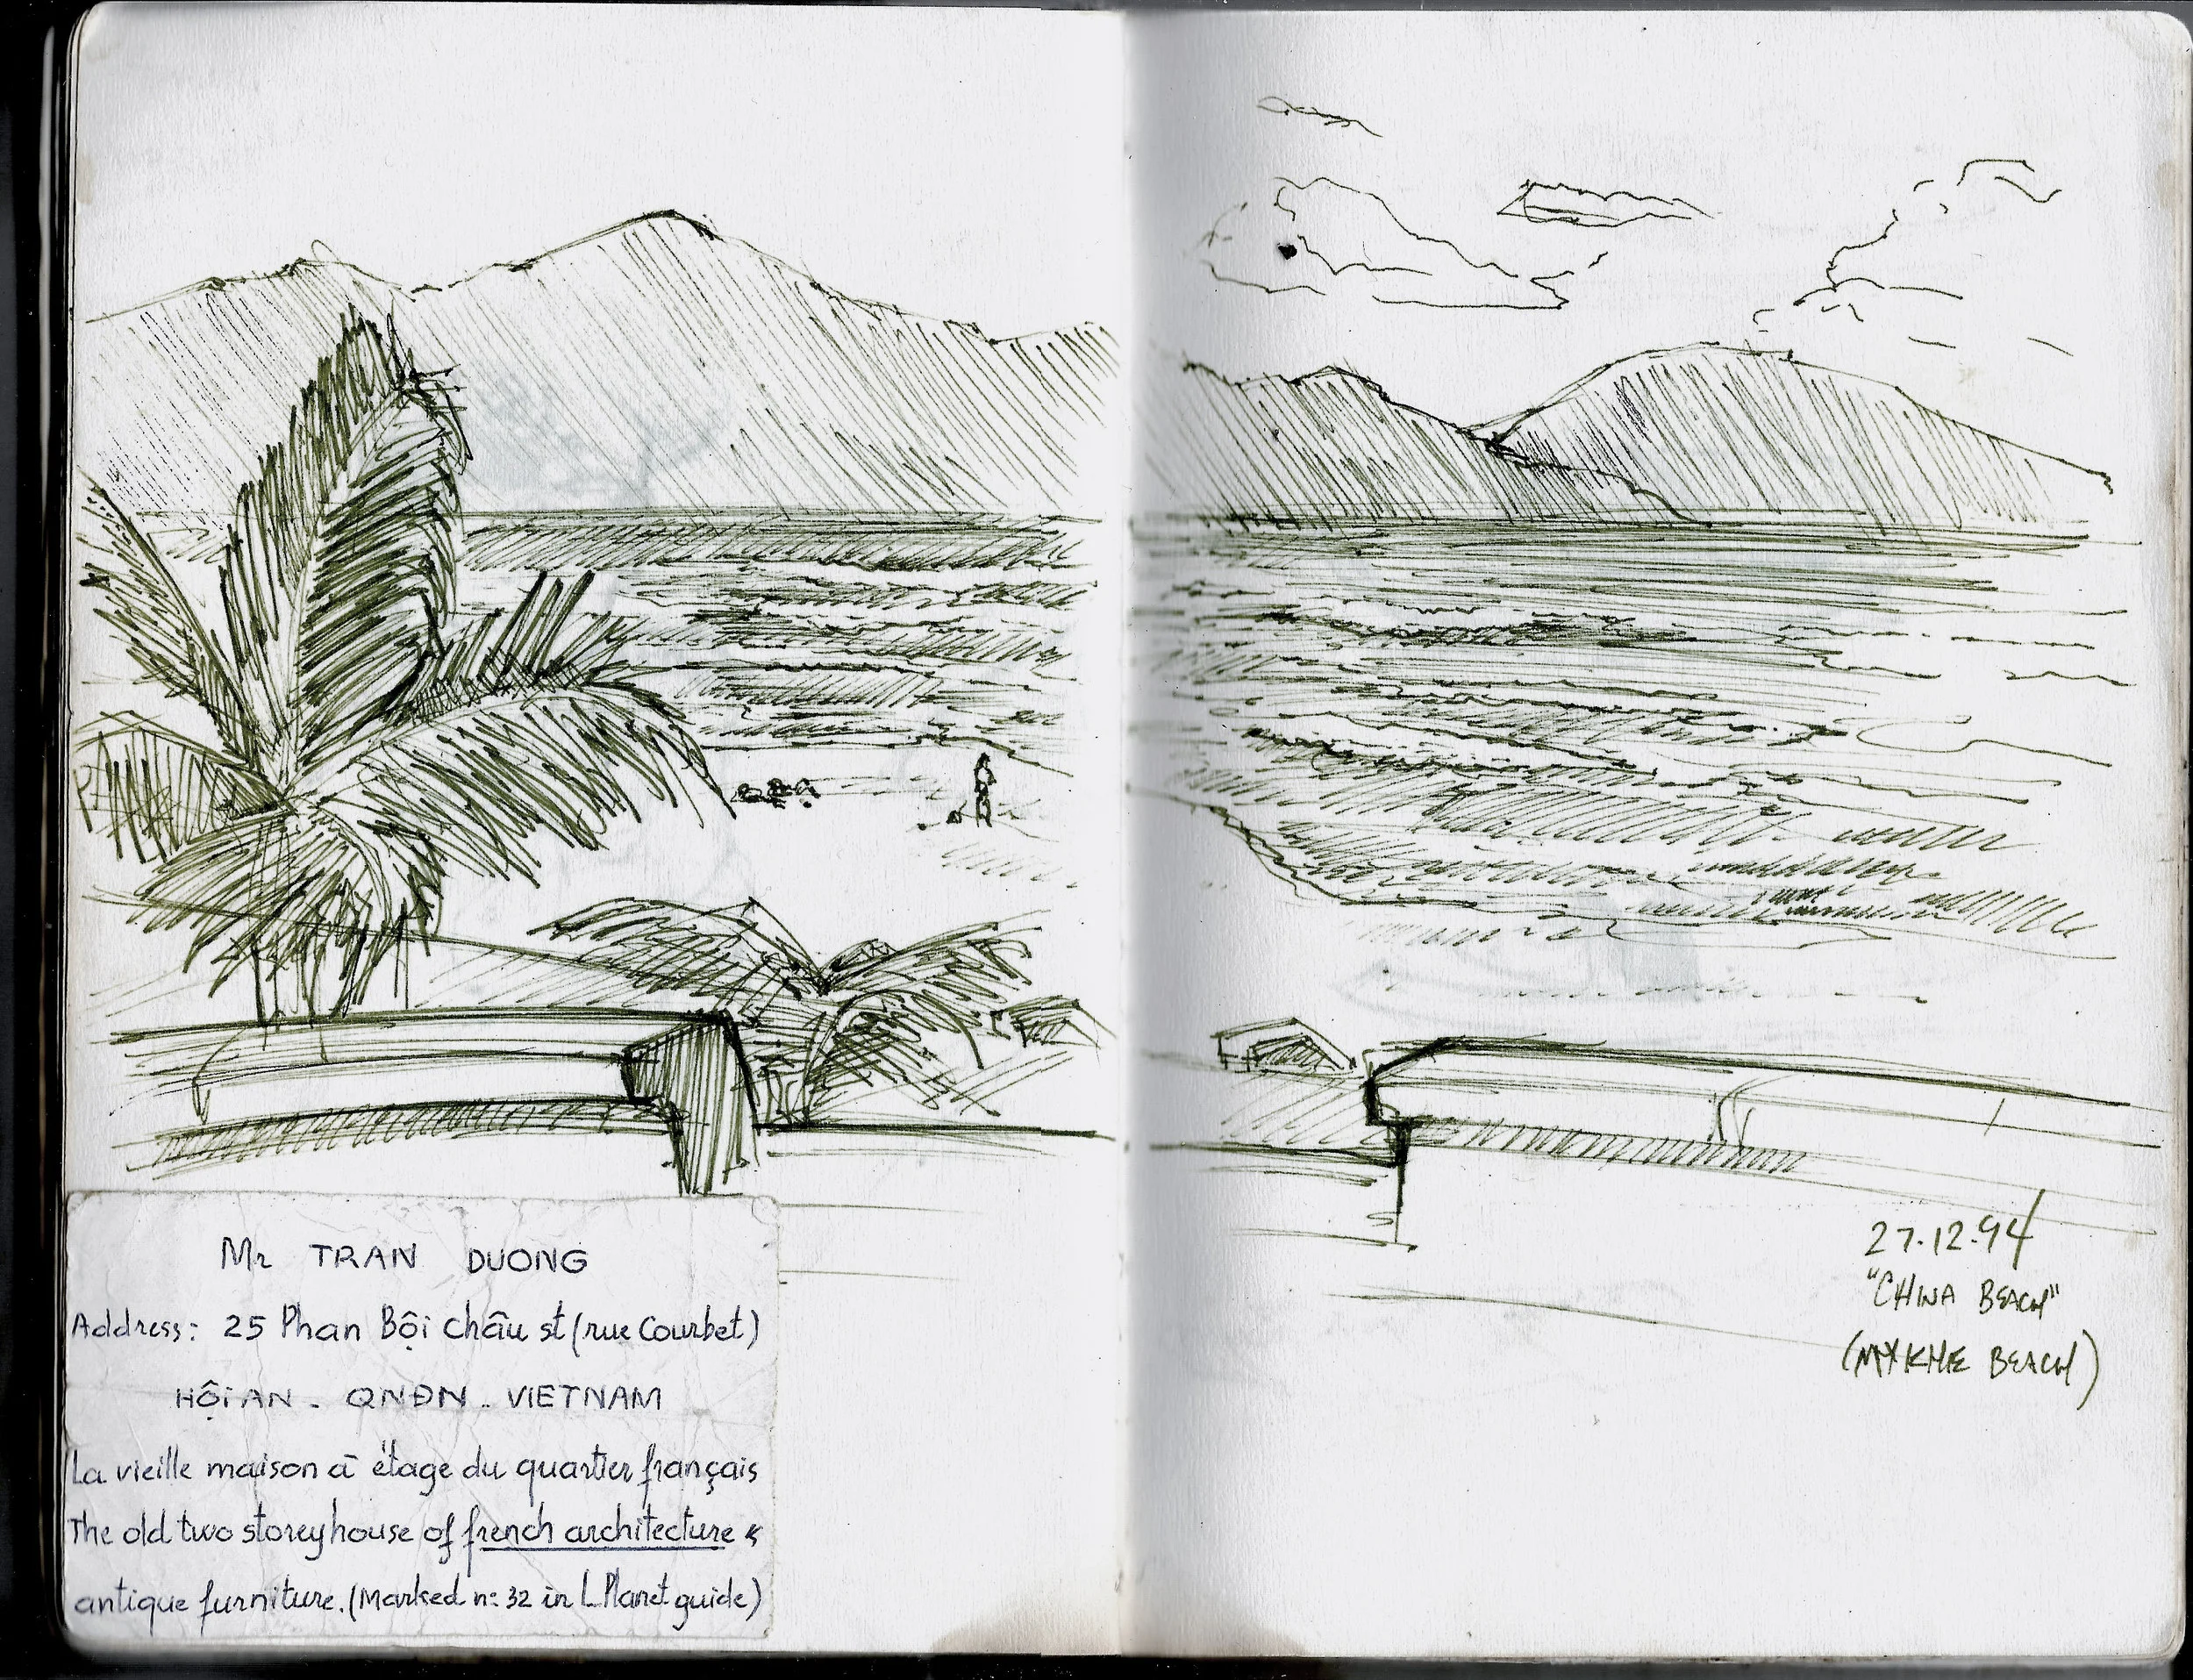 Mr TRAN DUONG
Address: 25 Phan Bội châu st (rue Courbet)
HỘI AN - QNĐN - VIETNAM
La vieille maison à étage du quartier français
The old two storey house of french architecture &
antique furniture. (Marked n: 32 in L Planet guide)
27.12.94
"CHINA BEACH"
(MY KHE BEACH)